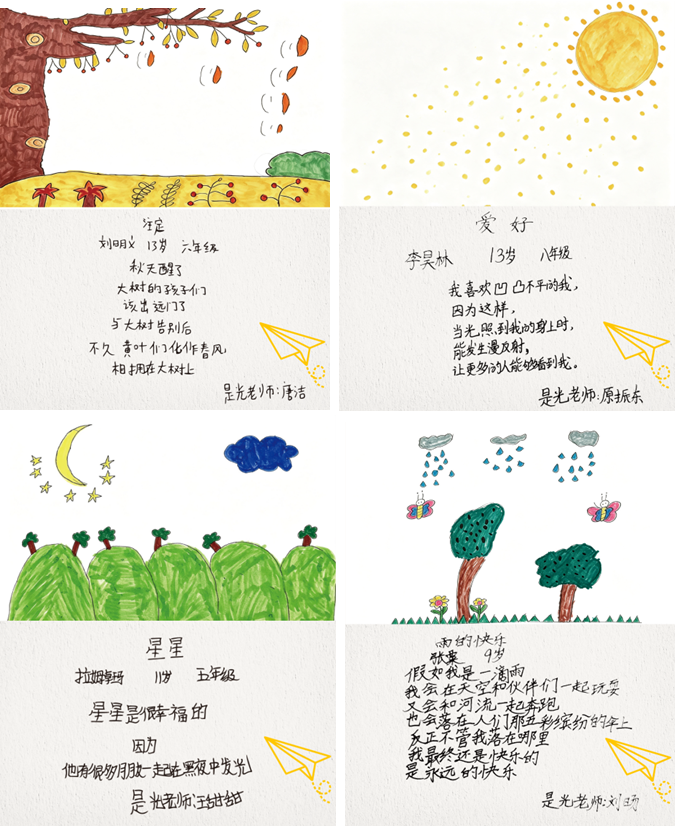 注定
刘明义 13岁 六年级
秋天醒了
大树的孩子们
该出远门了
与大树告别后
不久 黄叶们化作春风
相拥在大树上
是光老师:唐洁
爱好
李昊林 13岁 八年级
我喜欢凹凸不平的我,
因为这样,
当光照到我的身上时,
能发生漫反射,
让更多的人能够看到我。
是光老师:原振东
星星
拉姆卓玛 11岁 五年级
星星是很幸福的
因为
他有很多朋友一起在黑夜中发光
是光老师:汪甜甜
雨的快乐
张棠 9岁
假如我是一滴雨
我会在天空和伙伴们一起玩耍
又会和河流一起奔跑
也会落在人们那五彩缤纷的伞上
反正不管我落在哪里
我最终还是快乐的
是永远的快乐
是光老师:刘旸